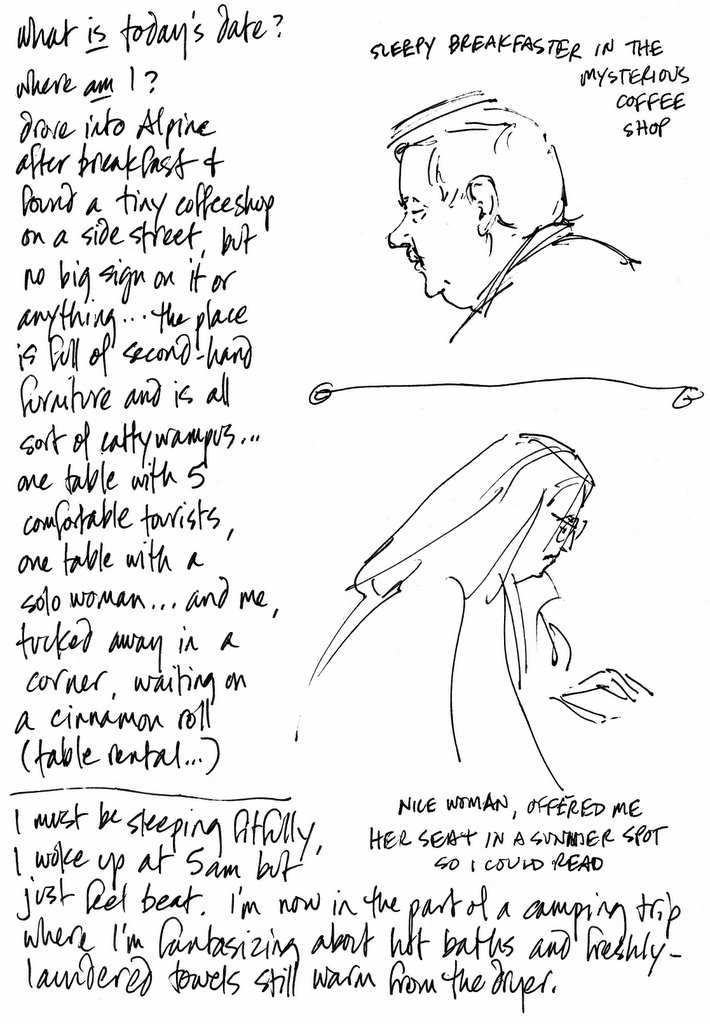 what is today's date?
where am I?
drove into Alpine
after breakfast &
found a tiny coffeeshop
on a side street, but
no big sign on it or
anything... the place
is full of second-hand
furniture and is all
sort of cattywampus...
one table with 5
comfortable tourists,
one table with a
solo woman... and me,
tucked away in a
corner, waiting on
a cinnamon roll
(table rental...)
SLEEPY BREAKFASTER IN THE
MYSTERIOUS
COFFEE
SHOP
NICE WOMAN, OFFERED ME
HER SEAT IN A SUNNIER SPOT
SO I COULD READ
I must be sleeping fitfully,
I woke up at 5am but
just feel beat. I'm now in the part of a camping trip
where I'm fantasizing about hot baths and freshly-
laundered towels still warm from the dryer.